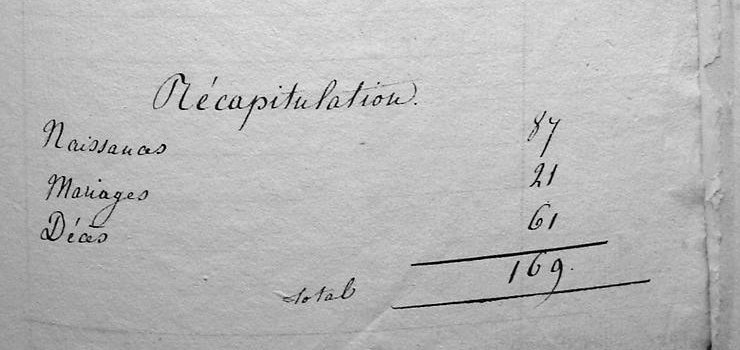 Récapitulation.
Naissances 87
Mariages 21
Décès 61
total 169.